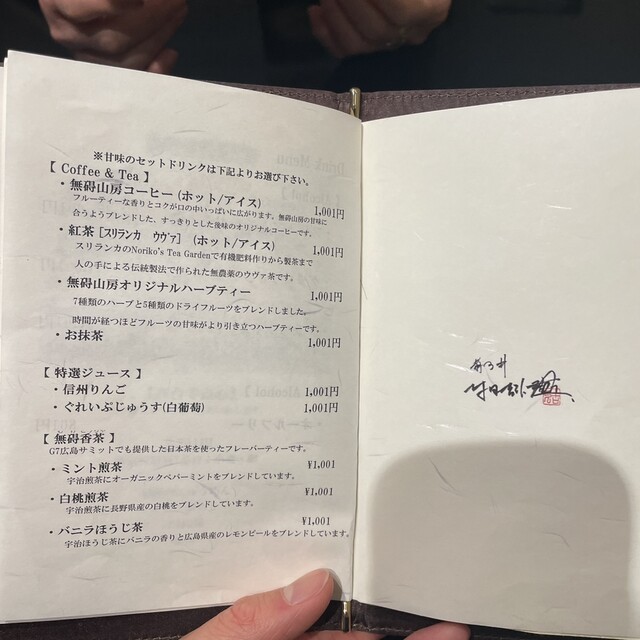 ※甘味のセットドリンクは下記よりお選び下さい。
【 Coffee & Tea 】
・無碍山房コーヒー (ホット/アイス) 1,001円
フルーティーな香りとコクが口の中いっぱいに広がります。無碍山房の甘味に
合うようブレンドした、すっきりとした後味のオリジナルコーヒーです。
・紅茶 [スリランカ ウヴァ] (ホット/アイス) 1,001円
スリランカのNoriko's Tea Gardenで有機肥料作りから製茶まで
人の手による伝統製法で作られた無農薬のウヴァ茶です。
・無碍山房オリジナルハーブティー 1,001円
7種類のハーブと5種類のドライフルーツをブレンドしました。
時間が経つほどフルーツの甘味がより引き立つハーブティーです。
・お抹茶 1,001円
【 特選ジュース 】
・信州りんご 1,001円
・ぐれいぷじゅうす(白葡萄) 1,001円
【 無碍香茶 】
G7広島サミットでも提供した日本茶を使ったフレーバーティーです。
・ミント煎茶 ¥1,001
宇治煎茶にオーガニックペパーミントをブレンドしています。
・白桃煎茶 ¥1,001
宇治煎茶に長野県産の白桃をブレンドしています。
・バニラほうじ茶 ¥1,001
宇治ほうじ茶にバニラの香りと広島県産のレモンピールをブレンドしています。